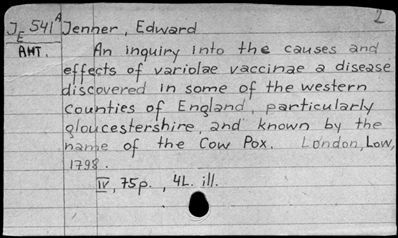 2
JE 541 A Jenner, Edward
AHT. An inquiry into the causes and
effects of variolae vaccinae a disease
discovered in some of the western
counties of England, particularly
gloucestershire, and known by the
name of the Cow Pox. London, Low,
1798.
IV, 75p., 4L. ill.